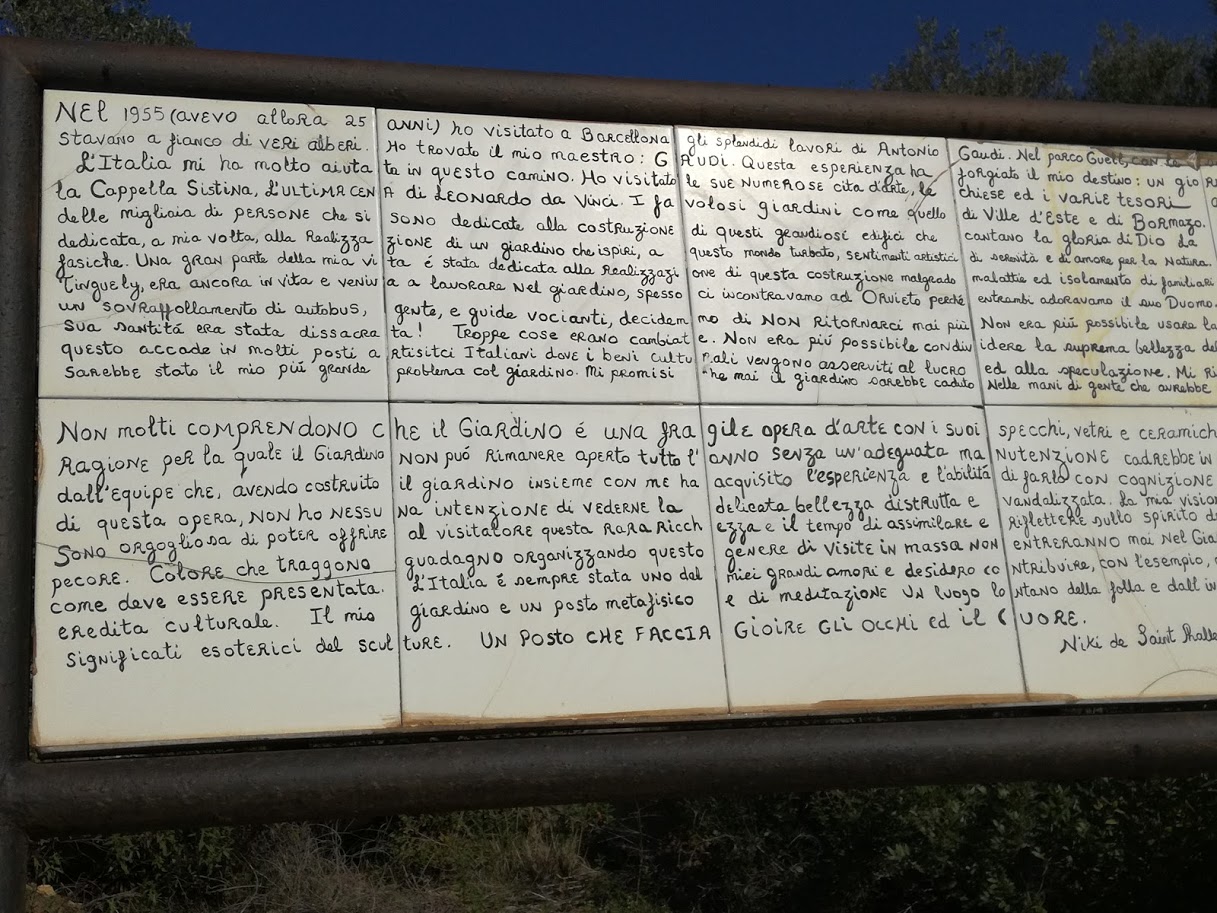 NEl 1955 (avevo allora 25 anni) ho visitato a Barcellona gli splendidi lavori di Antonio Gaudi. Nel parco Guell, con la
stavano a fianco di veri alberi. Ho trovato il mio maestro: GAUDI. Questa esperienza ha forgiato il mio destino: un gio
L'Italia mi ha molto aiutata in questo camino. Ho visitato le sue numerose cita d'arte, le chiese ed i varie tesori
la Cappella Sistina, L'ultima cena di Leonardo da Vinci. I favolosi giardini come quello di Ville d'Este e di Bormazo.
delle migliaia di persone che si sono dedicate alla costruzione di questi grandiosi edifici che cantano la gloria di Dio La
dedicata, a mia volta, alla Realizzazione di un giardino che ispiri, a questo mondo turbato, sentimenti artistici di serenità e di amore per la Natura.
fasiche. Una gran parte della mia vita é stata dedicata alla Realizzazione di questa costruzione malgrado malattie ed isolamento di familiari
Tinguely, era ancora in vita e veniva a lavorare nel giardino, spesso ci incontravamo ad Orvieto perché entrambi adoravamo il suo Duomo.
un sovraffollamento di autobus, gente, e guide vocianti, decidemmo di non ritornarci mai più Non era piú possibile usare la
sua santitá era stata dissacrata! Troppe cose erano cambiate. Non era piú possibile condividere la suprema bellezza del
questo accade in molti posti artisitci Italiani dove i beni culturali vengono asserviti al lucro ed alla speculazione. Mi
sarebbe stato il mio piú grande problema col giardino. Mi promisi che mai il giardino sarebbe caduto nelle mani di gente che avrebbe
Non molti comprendono che il Giardino é una fragile opera d'arte con i suoi specchi, vetri e ceramich
Ragione per la quale il Giardino non puó rimanere aperto tutto l'anno senza un'adeguata manutenzione cadrebbe in
dall'equipe che, avendo costruito il giardino insieme con me ha acquisito l'esperienza e l'abilitá di farlo con cognizione
di questa opera, non ho nessuna intenzione di vederne la delicata bellezza distrutta e vandalizzata. La mia vision
Sono orgogliosa di poter offrire al visitatore questa rara ricchezza e il tempo di assimilare e riflettere sullo spirito d
pecore. Colore che traggono guadagno organizzando questo genere di visite in massa non entreranno mai nel Gia
come deve essere presentata. L'Italia é sempre stata uno dal miei grandi amori e desidero contribuire, con l'esempio,
eredita culturale. Il mio giardino e un posto metafisico e di meditazione un luogo lontano della folla e dall'in
significati esoterici del sculture. UN POSTO CHE FACCIA GIOIRE GLI OCCHI ed il CUORE.
Niki de Saint Phalle